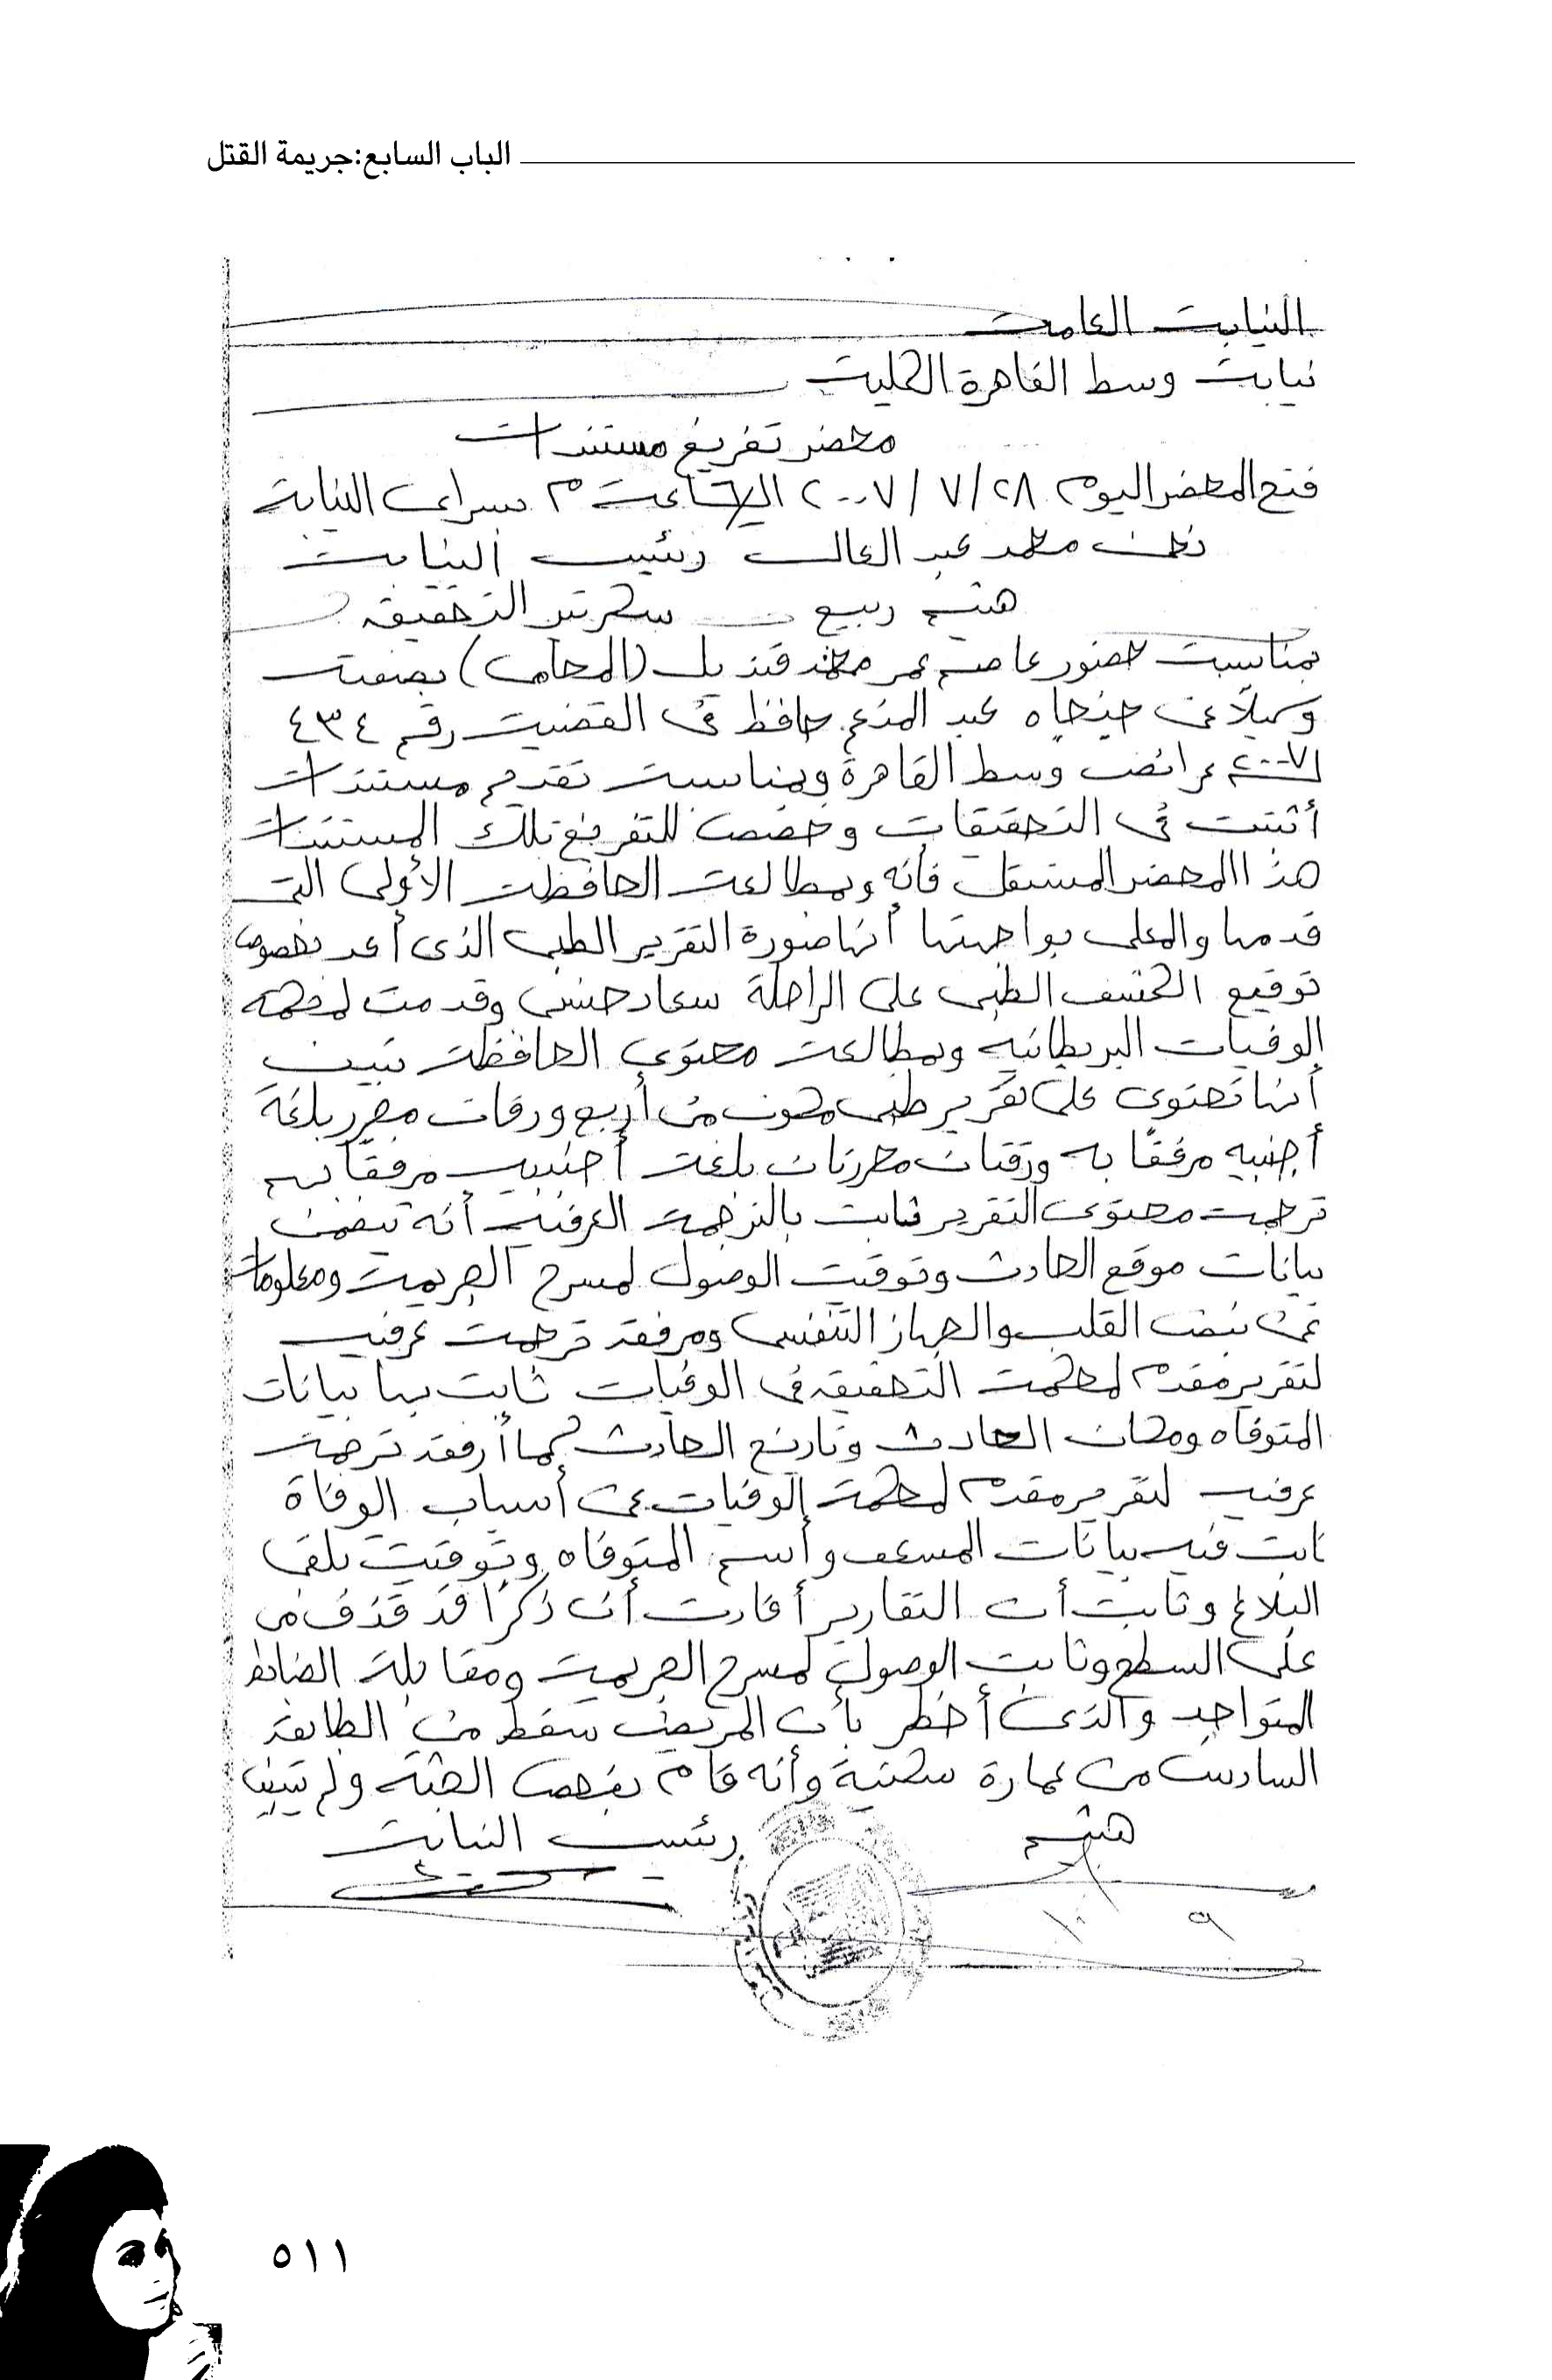 الباب السابع:جريمة القتل
النيابة العامة
نيابة وسط القاهرة الكلية
محضر تفريغ مستندات
فتح المحضر اليوم ٢٨/ ٧/ ٢٠٠٧ الساعة م بسراى النيابة
نحن محمد عبد العال رئيس النيابة
هيثم ربيع سكرتير التحقيق
بمناسبة حضور عاصم عمر محمد قنديل (المحامى) بصفته
وكيلاً عن جنجاه عبد المنعم حافظ فى القضية رقم ٤٣٤
لسنة ٢٠٠٧ عرائض وسط القاهرة وبمناسبة تقديم مستندات
أثبتت فى التحقيقات وخصص للتفريغ تلك المستندات
هذا المحضر المستقل فأنه وبمطالعة الحافظة الأولى التى
قدمها والمعلى بواجهتها أنها صورة التقرير الطبى الذى أعد بخصوص
توقيع الكشف الطبى على الراحلة سعاد حسنى وقدمت لمحكمة
الوفيات البريطانيه وبمطالعة محتوى الحافظة تبين
أنها تحتوى على تقرير طبى مكون من أربع ورقات محرر بلغة
أجنبيه مرفقاً به ورقتان محررتان بلغة أجنبيه مرفقاً بهم
ترجمة محتوى التقرير ثابت بالترجمة العرفيه أنه تتضمن
بيانات موقع الحادث وتوقيت الوصول لمسرح الجريمة ومعلومات
عن نبض القلب والجهاز التنفسى ومرفقه ترجمة عرفيه
لتقرير مقدم لمحكمة التحقيق فى الوفيات ثابت بها بيانات
المتوفاه ومكان الحادث وتاريخ الحادث كما أرفقه ترجمة
عرفيه لتقرير مقدم لمحكمة الوفيات عن أسباب الوفاة
ثابت فيه بيانات المسعف وأسم المتوفاه وتوقيت تلقى
البلاغ وثابت أن التقارير أفادت أن ذكراً قد قذف من
على السطح وثابت الوصول لمسرح الجريمة ومقابلة الضابط
المتواجد والذى أخطر بأن المريض سقط من الطابق
السادس من عمارة سكنية وأنه قام بفحص الجثه ولم تتبين
هيثم رئيس النيابة
٥١١